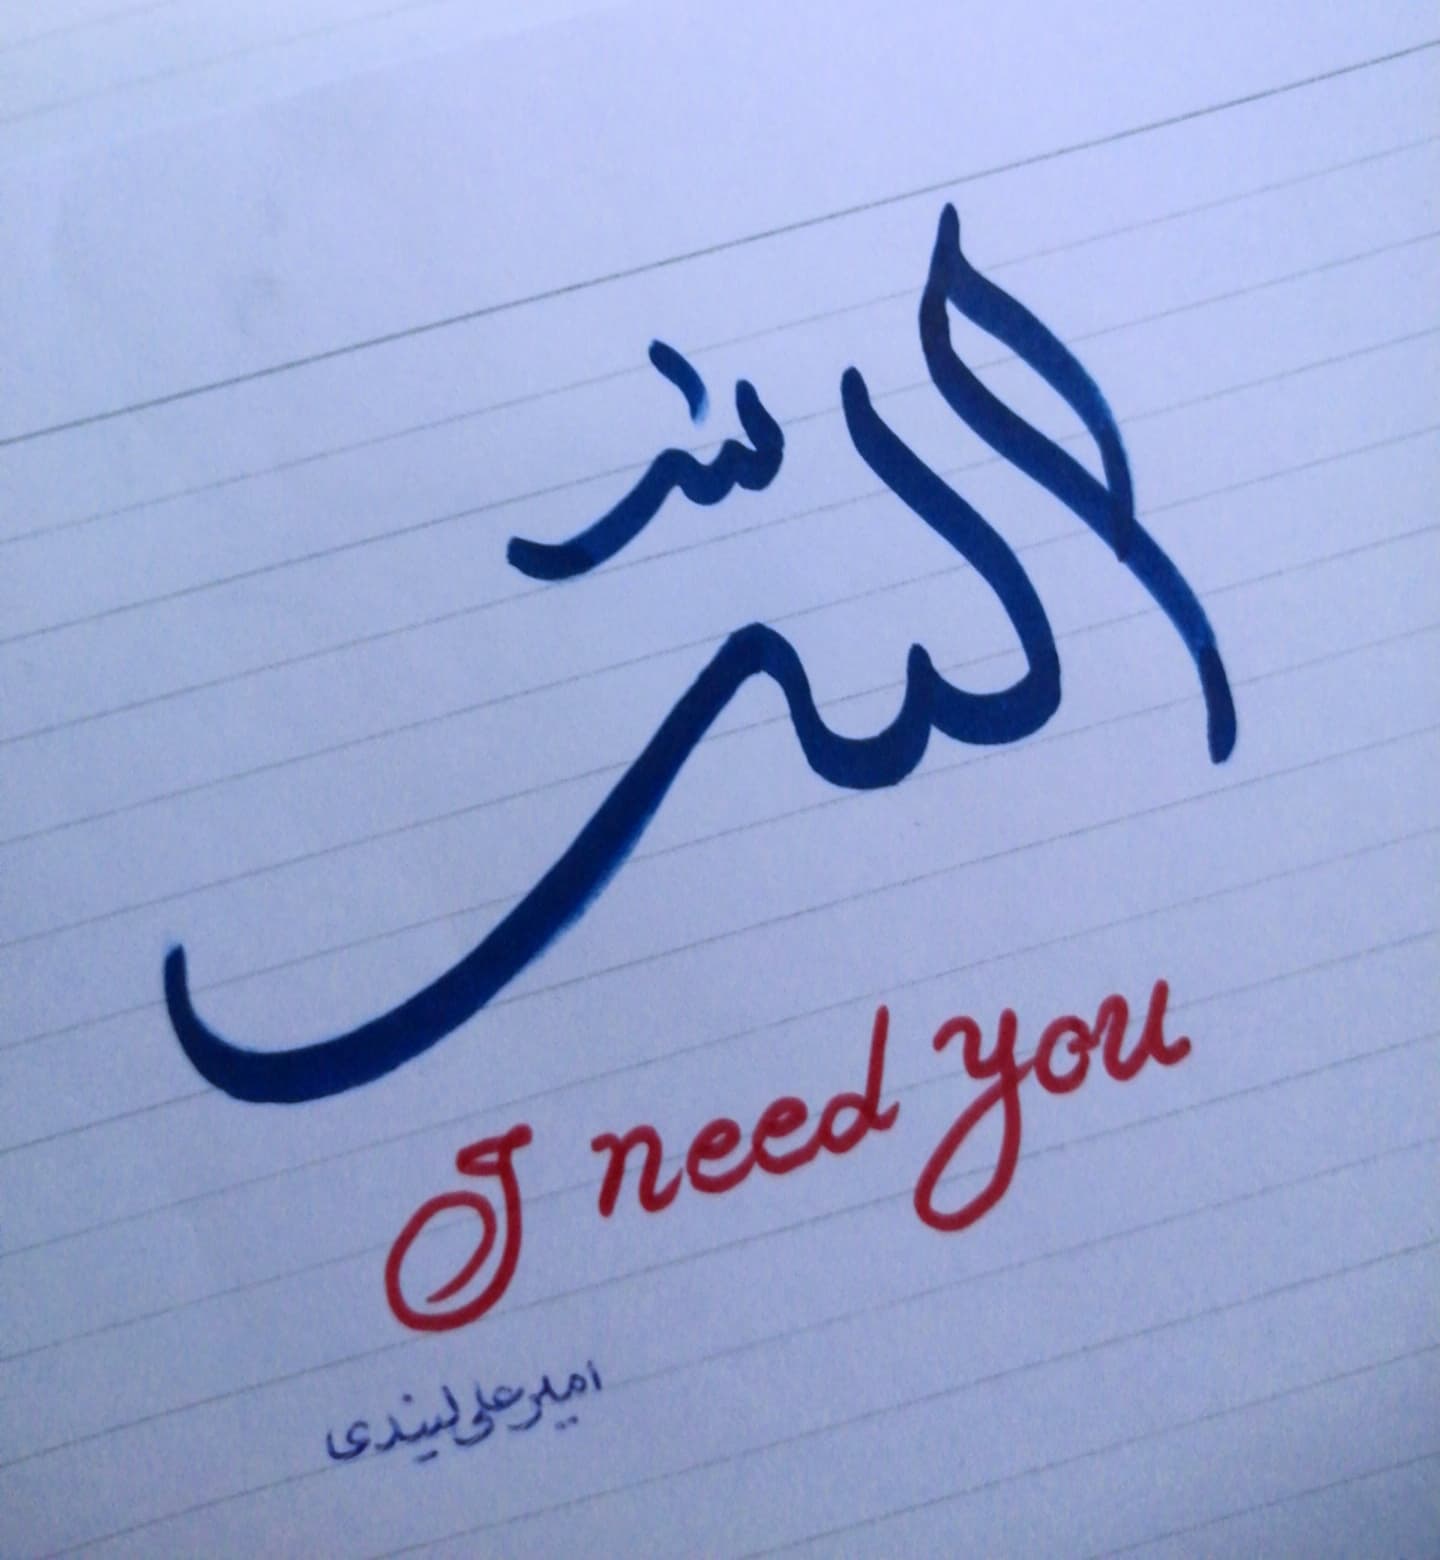 الله
I need you
امیر علی لیندی